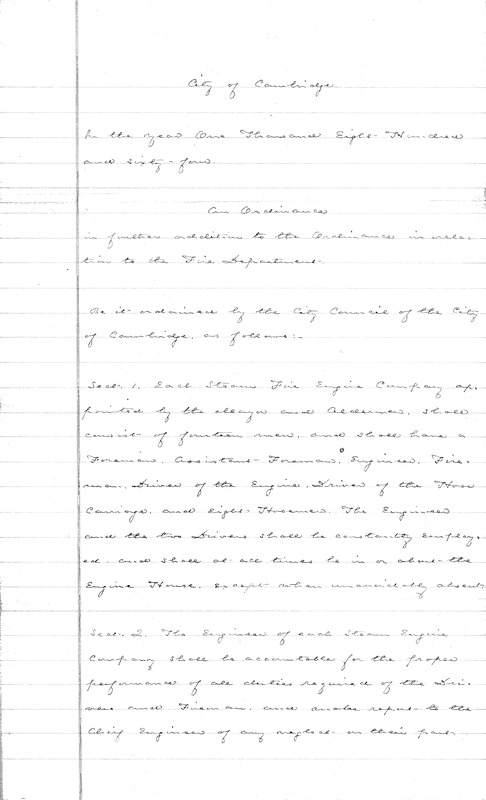 City of Cambridge.
In the year One Thousand Eight Hundred
and sixty-four.
An Ordinance
in further addition to the Ordinance in rela-
tion to the Fire Department.
Be it ordained by the City Council of the City
of Cambridge, as follows:-
Sect. 1. Each Steam Fire Engine Company ap-
pointed by the Mayor and Aldermen, shall
consist of fourteen men, and shall have a
Foreman, Assistant Foreman, Engineer, Fire-
man, Driver of the Engine, Driver of the Hose
Carriage, and eight Hosemen. The Engineer
and the two Drivers shall be constantly employ-
ed and shall at all times be in or about the
Engine House, except when unavoidably absent.
Sect. 2. The Engineer of each Steam Engine
Company shall be accountable for the proper
performance of all duties required of the Dri-
vers and Fireman, and make report to the
Chief Engineer of any neglect on their part.